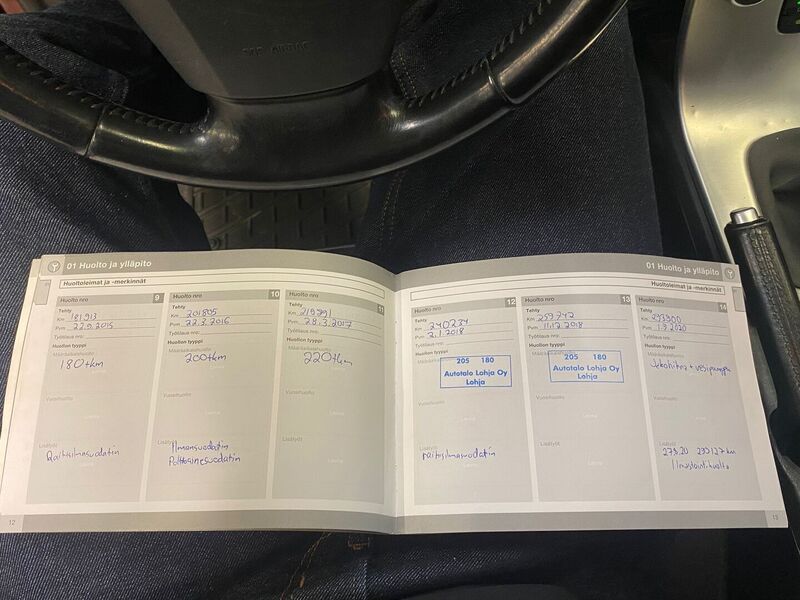 SRS AIRBAG
01 Huolto ja ylläpito
Huoltoleimat ja -merkinnät
Huolto nro 9
Tehty
Km 181913
Pvm 22.9.2015
Työtilaus nro:
Huollon tyyppi
Määräaikaishuolto
180tkm
Vuosihuolto
Leima
Lisätyöt
Raitisilmasuodatin
Leima
12
Huolto nro 10
Tehty
Km 201805
Pvm 22.3.2016
Työtilaus nro:
Huollon tyyppi
Määräaikaishuolto
200tkm
Vuosihuolto
Leima
Lisätyöt
Ilmansuodatin
Polttoainesuodatin
Leima
Huolto nro 11
Tehty
Km 219791
Pvm 28.3.2017
Työtilaus nro:
Huollon tyyppi
Määräaikaishuolto
220tkm
Vuosihuolto
Leima
Lisätyöt
Leima
01 Huolto ja ylläpito
Huoltoleimat ja -merkinnät
Huolto nro 12
Tehty
Km 240234
Pvm 2.1.2018
Työtilaus nro:
Huollon tyyppi
205 180
Autotalo Lohja Oy
Lohja
Vuosihuolto
Leima
Lisätyöt
raitisilmasuodatin
Leima
Huolto nro 13
Tehty
Km 259742
Pvm 11.12.2018
Työtilaus nro:
Huollon tyyppi
205 180
Autotalo Lohja Oy
Lohja
Vuosihuolto
Leima
Lisätyöt
Leima
Huolto nro 14
Tehty
Km 293900
Pvm 1.9.2020
Työtilaus nro:
Huollon tyyppi
Määräaikaishuolto
Jakohihna + vesipumppu
Vuosihuolto
Leima
Lisätyöt
27.8.20
Ilmastointihuolto
13